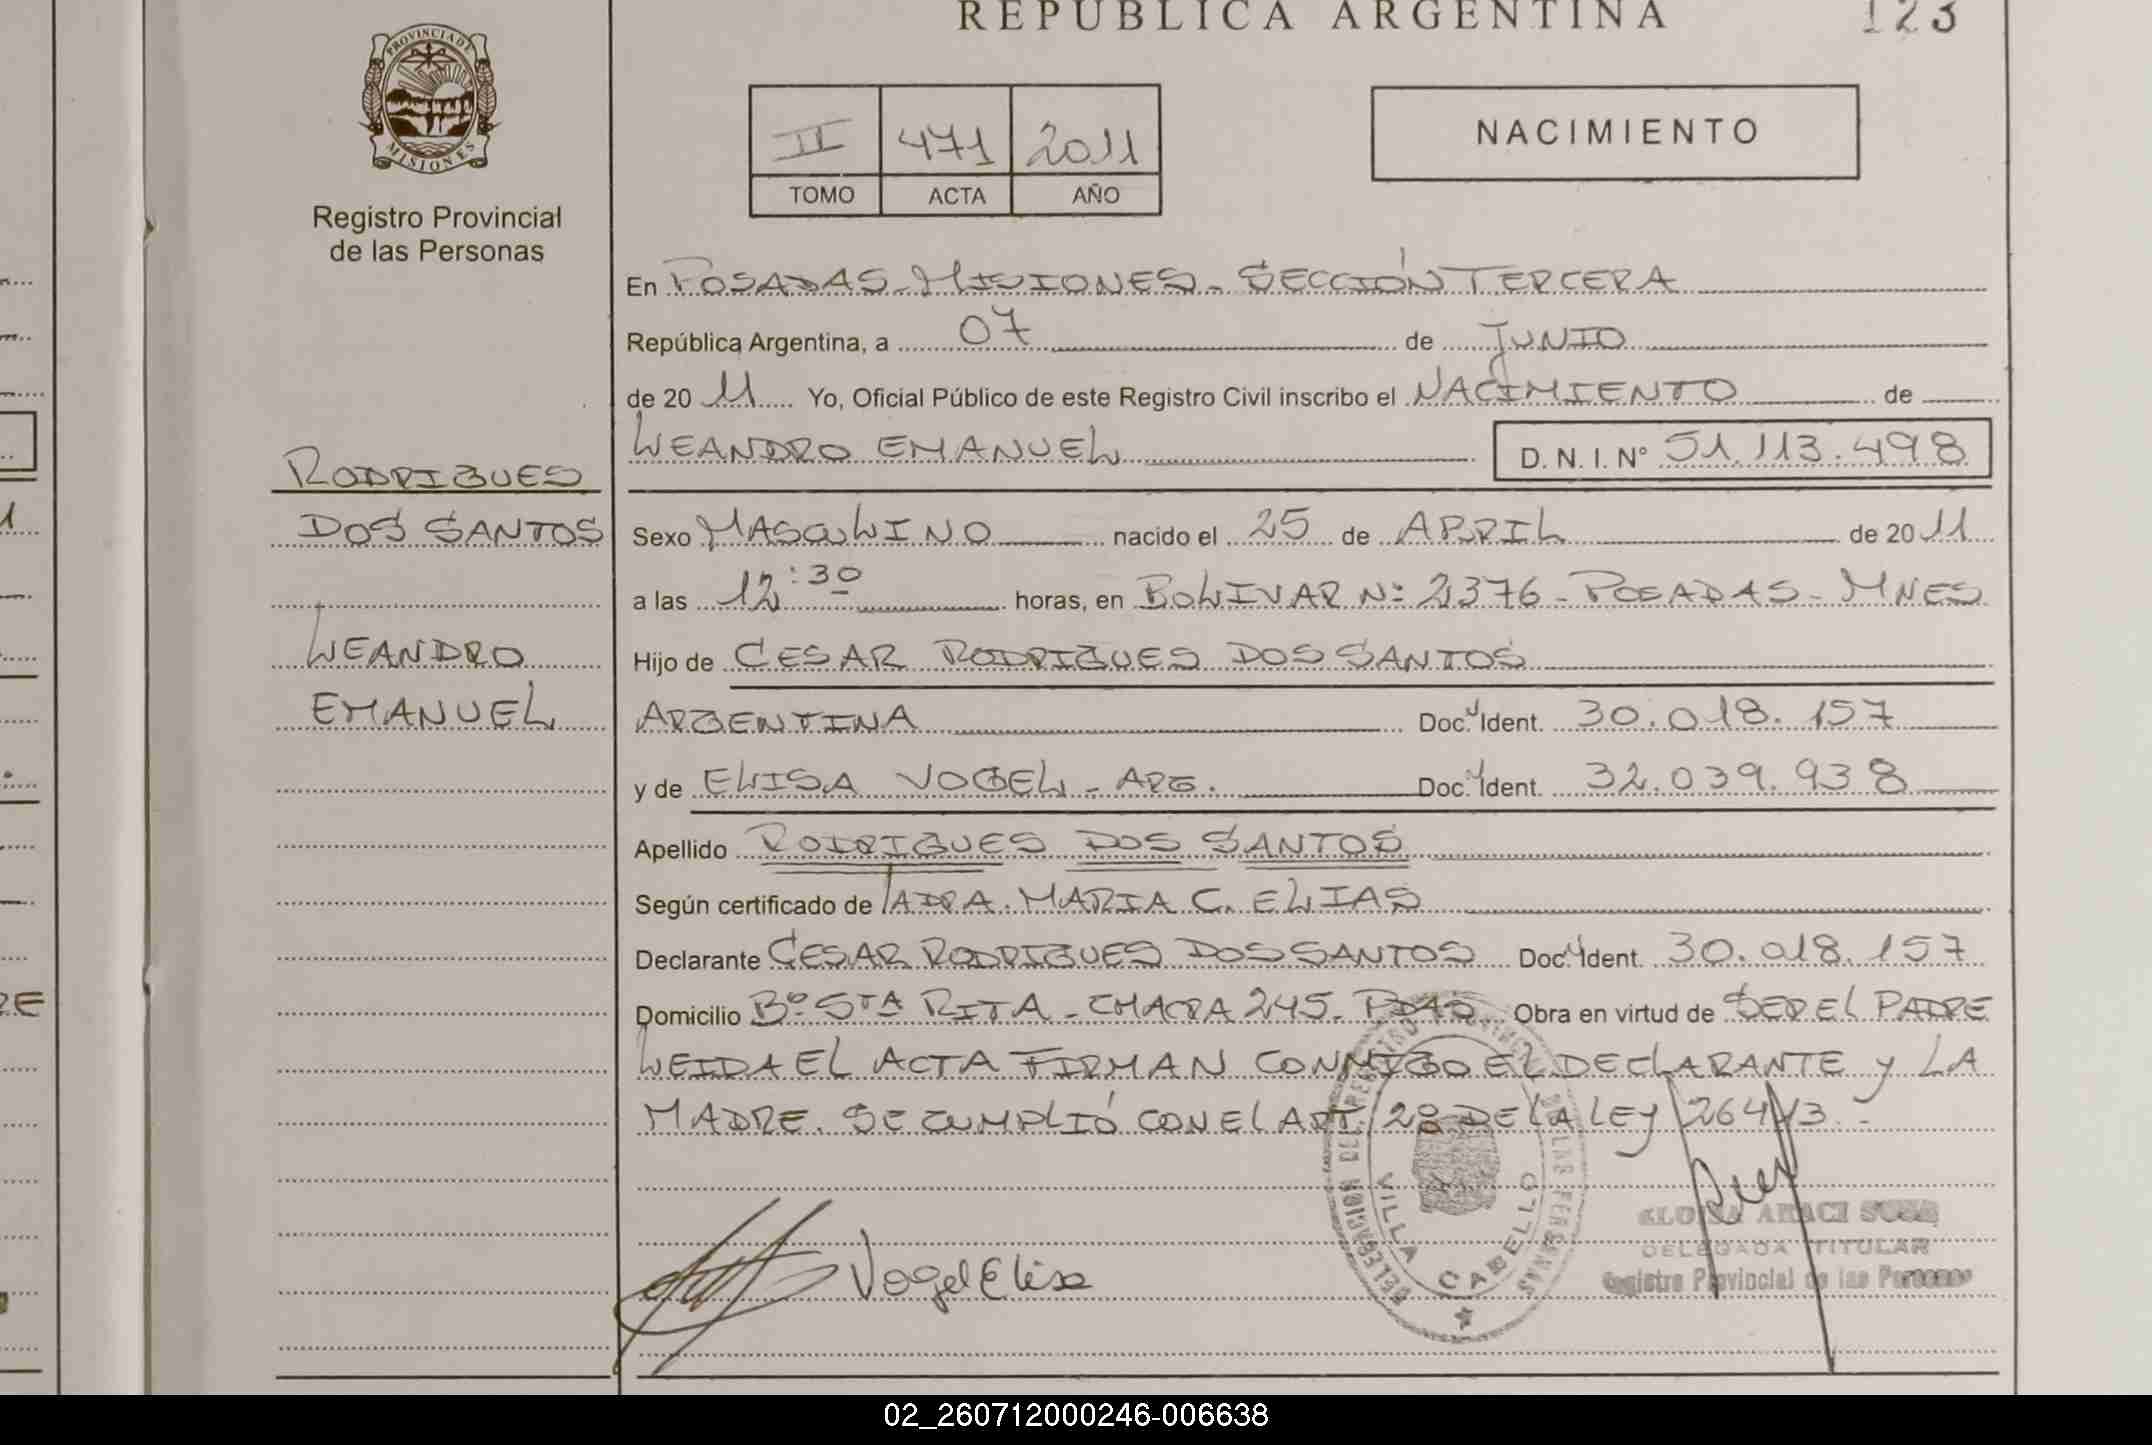 REPUBLICA ARGENTINA
123
PROVINCIA DE
MISIONES
Registro Provincial
de las Personas
II 471 2011
TOMO ACTA AÑO
NACIMIENTO
En POSADAS - MISIONES - SECCIÓN TERCERA
República Argentina, a 07 de JUNIO
de 20 11 Yo, Oficial Público de este Registro Civil inscribo el NACIMIENTO de
LEANDRO EMANUEL D. N. I. N° 51.113.498
RODRIGUES
DOS SANTOS
LEANDRO
EMANUEL
Sexo MASCULINO nacido el 25 de ABRIL de 20 11
a las 12:30 horas, en BOLIVAR Nº 2376 - POSADAS - MNES
Hijo de CESAR RODRIGUES DOS SANTOS
ARGENTINA Doc. Ident. 30.018.157
y de ELISA VOGEL - ARG. Doc. Ident. 32.039.938
Apellido RODRIGUES DOS SANTOS
Según certificado de MARIA C. ELIAS
Declarante CESAR RODRIGUES DOS SANTOS Doc. Ident. 30.018.157
Domicilio Bº STA RITA - CHACRA 245 - PDAS Obra en virtud de SER EL PADRE
LEIDA EL ACTA FIRMAN CONMIGO EL DECLARANTE y LA
MADRE. SE CUMPLIÓ CON EL ART. 28 DE LA LEY 26413.-
Vogel Elisa
VILLA CABELLO
DELEGADA TITULAR
Registro Provincial de las Personas
02_260712000246-006638